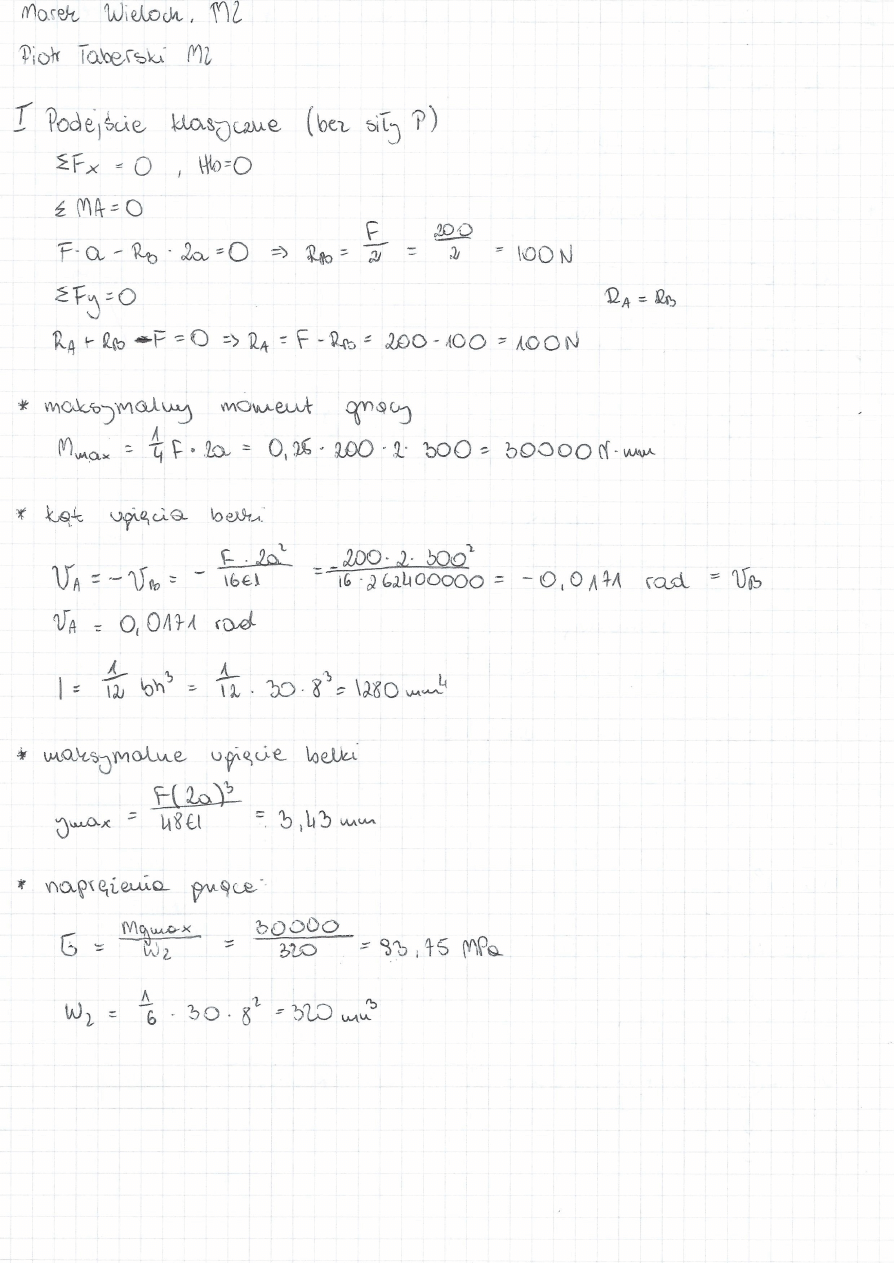 Marek Wieloch, M2
Piotr Taberski M2
I Podejście klasyczne (bez siły P)
ΣFx = 0 , Hb=0
Σ MA=0
F·a - RB · 2a=0 => RB = F/2 = 200/2 = 100N
ΣFy=0
RA = RB
RA + RB - F = 0 => RA = F - RB = 200 - 100 = 100N
* maksymalny moment gnący
Mmax = 1/4 F · 2a = 0,25 · 200 · 2 · 300 = 30000 N·mm
* kąt ugięcia belki
VA = -VB = - F · 2a²/16EI = -200 · 2 · 300²/16 · 262400000 = -0,0171 rad = VB
VA = 0,0171 rad
I = 1/12 bh³ = 1/12 · 30 · 8³ = 1280 mm⁴
* maksymalne ugięcie belki
ymax = F(2a)³/48EI = 3,43 mm
* naprężenia gnące
σ = Mgmax/Wz = 30000/320 = 93,75 MPa
Wz = 1/6 · 30 · 8² = 320 mm³